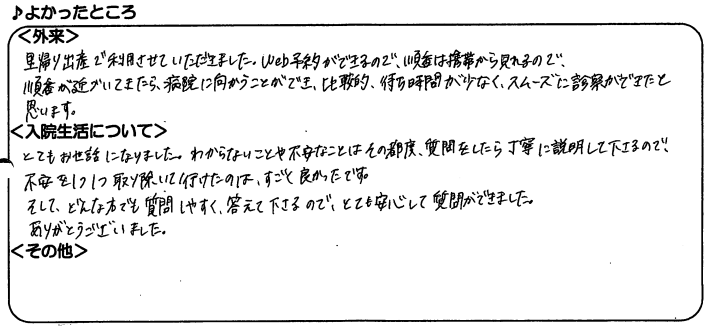 ♪よかったところ
<外来>
里帰り出産で利用させていただきました。Web予約ができるので、順番は携帯から見れるので、
順番が近づいてきたら、病院に向かうことができ、比較的、待ち時間が少なく、スムーズに診察ができたと
思います。
<入院生活について>
とてもお世話になりました。わからないことや不安なことはその都度、質問をしたら丁寧に説明して下さるので、
不安を1つ1つ取り除いて行けたのは、すごく良かったです。
そして、どんな方でも質問しやすく、答えて下さるので、とても安心して質問ができました。
ありがとうございました。
<その他>